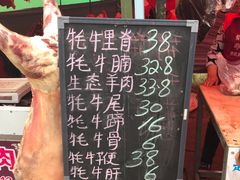 牦牛里脊 38
牦牛腩 32.8
生态羊肉 33.8
牦牛尾 30
牦牛蹄 16
牦牛骨 6
牦牛鞭 38
牦牛肝 6
肉